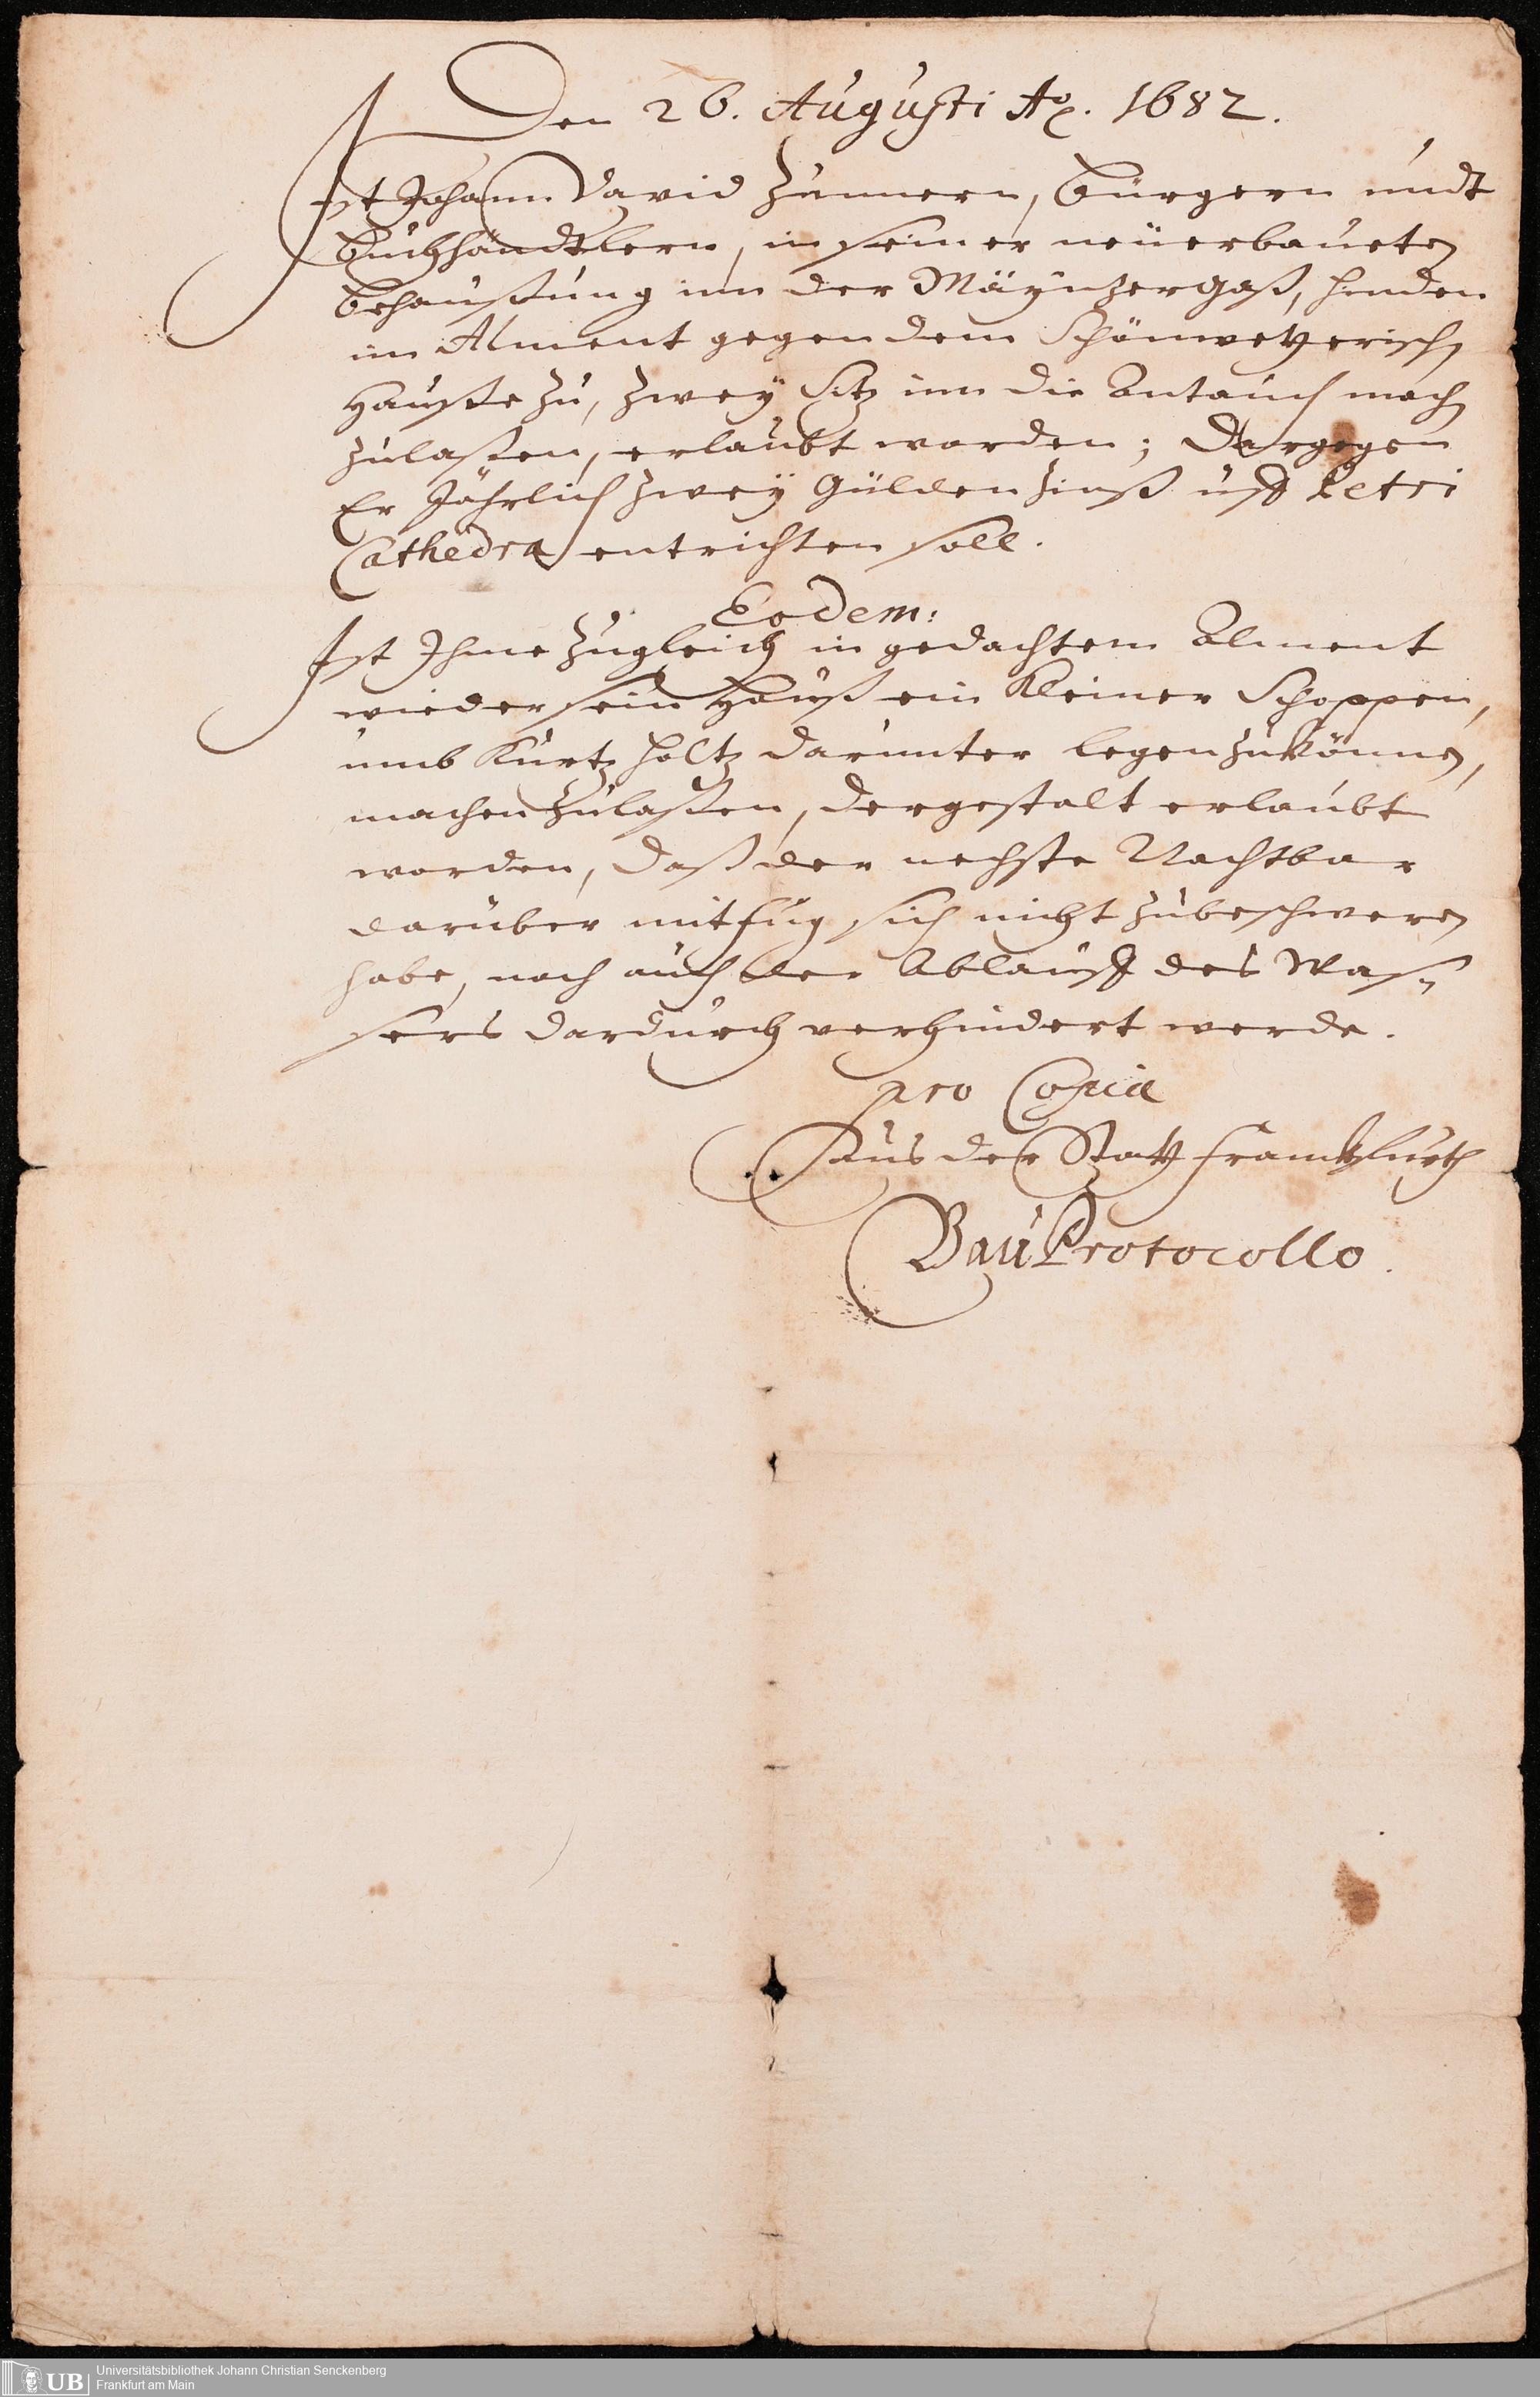 Den 26. Augusti Ao. 1682.
Ist Johann David Zunnern, Bürgern undt
Buchhändtlern, in seiner neuerbaueten
Behaußung inn der MäynzerGaß, hinden
im Alment gegen dem Schönwetterisch
Hauße zu, zwey Sitz inn die Antauch mach
zulaßen, erlaubt worden; Dargegen
Er Jährlich zwey Gülden Zinß uff Petri
Cathedra entrichten soll.
Eodem:
Ist Ihme zugleich in gedachtem Alment
wieder sein Hauß ein Kleiner Schoppen,
umb Kurtz Holtz darunter legen zukönnen,
machen zulaßen, dergestalt erlaubt
worden, daß der nechste Nachtbar
darüber mit fug sich nicht zubeschweren
habe, noch auch der Ablauff des Was-
sers dardurch verhindert werde.
pro Copia
Aus der Statt Franckfurth
BauProtocollo.
UB Universitätsbibliothek Johann Christian Senckenberg
Frankfurt am Main